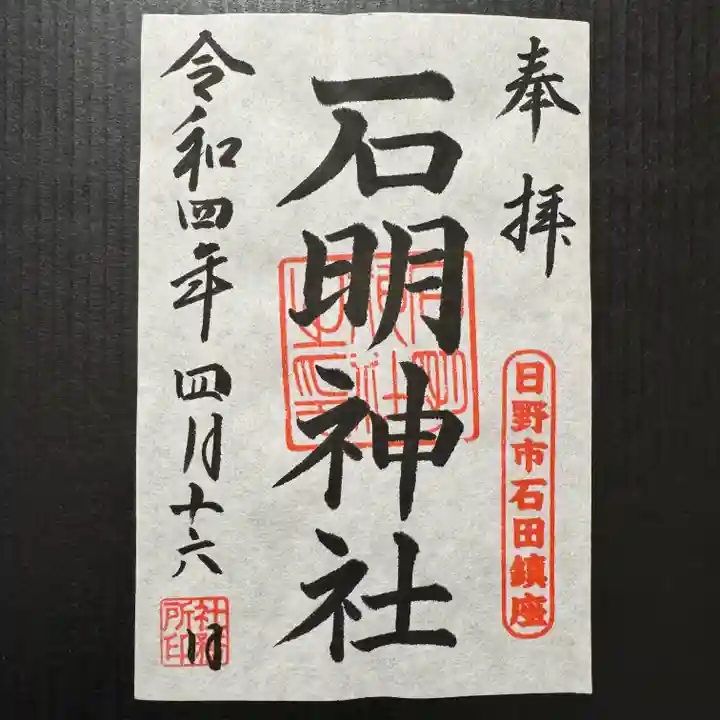 奉拝
日野市石田鎮座
石明神社
令和四年四月十六日
社務所印